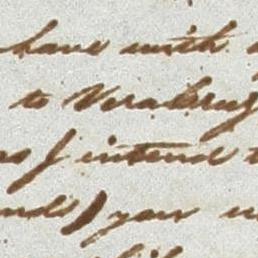 have with
to Veracruz
as I intend t
nds) your